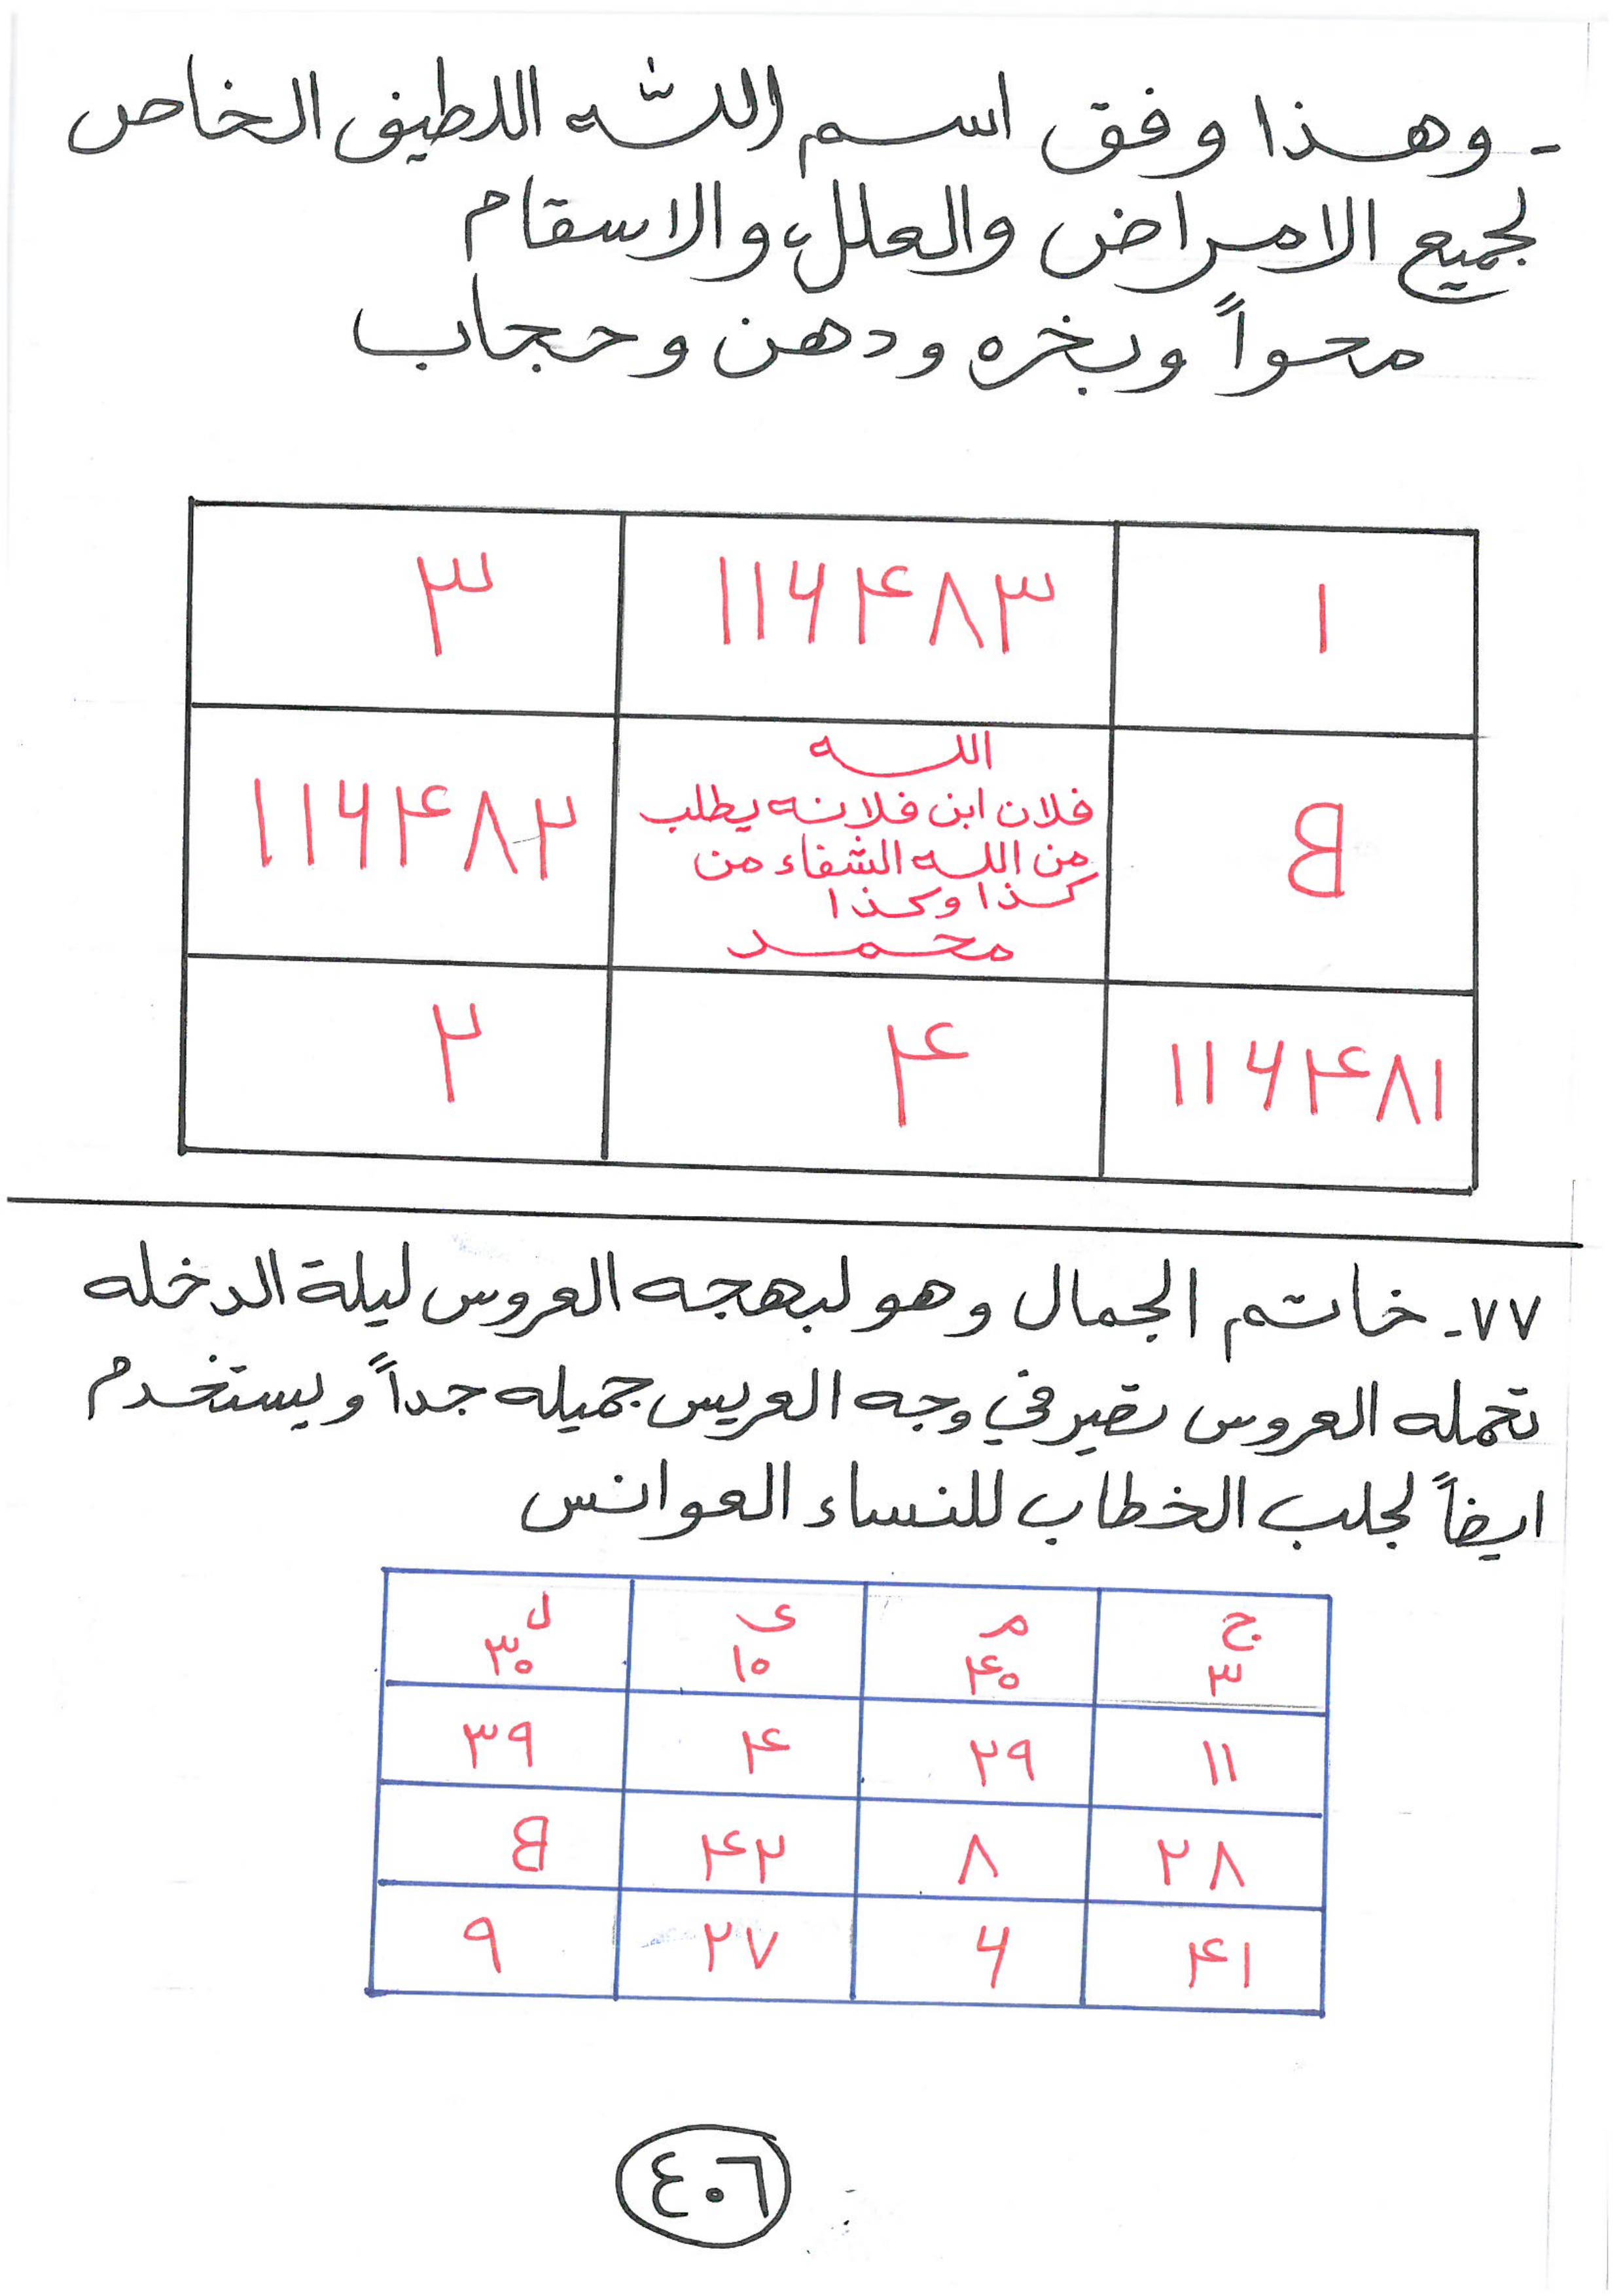 - وهذا وفق اسم الله اللطيف الخاص
لجميع الامراض والعلل والاسقام
محواً وبخره ودهن وحجاب
١ ١١٦۴٨٣ ٣
B الله ١١٦۴٨٢
فلان ابن فلانه يطلب
من الله الشفاء من
كذا وكذا
محمد
١١٦۴٨١ ۴ ٢
٧٧- خاتم الجمال وهو لبهجه العروس ليلة الدخله
تحمله العروس تصير في وجه العريس جميله جداً ويستخدم
ايضاً لجلب الخطاب للنساء العوانس
ج م ى ل
٣ ۴٠ ١٠ ٣٠
١١ ٢٩ ۴ ٣٩
٢٨ ٨ ۴٢ B
۴١ ٦ ٢٧ ٩
٤٠٦